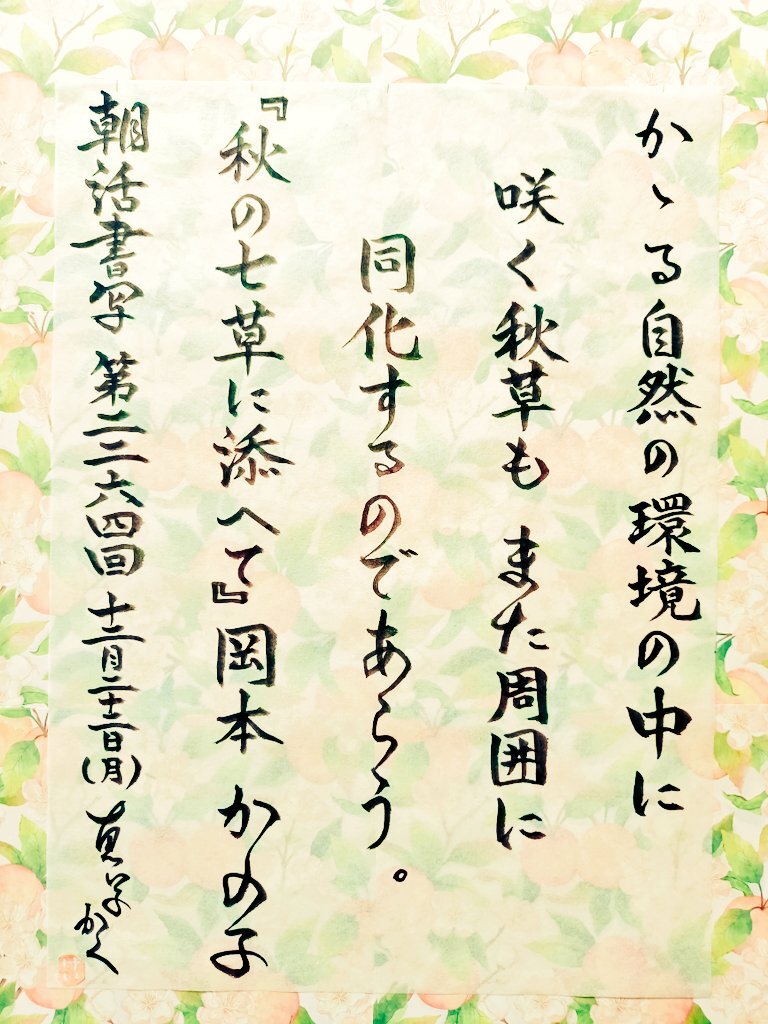 かゝる自然の環境の中に
咲く秋草も また周囲に
同化するのであらう。
『秋の七草に添へて』岡本 かの子
朝活書写 第二二六四回 十二月二十二日(月) かく